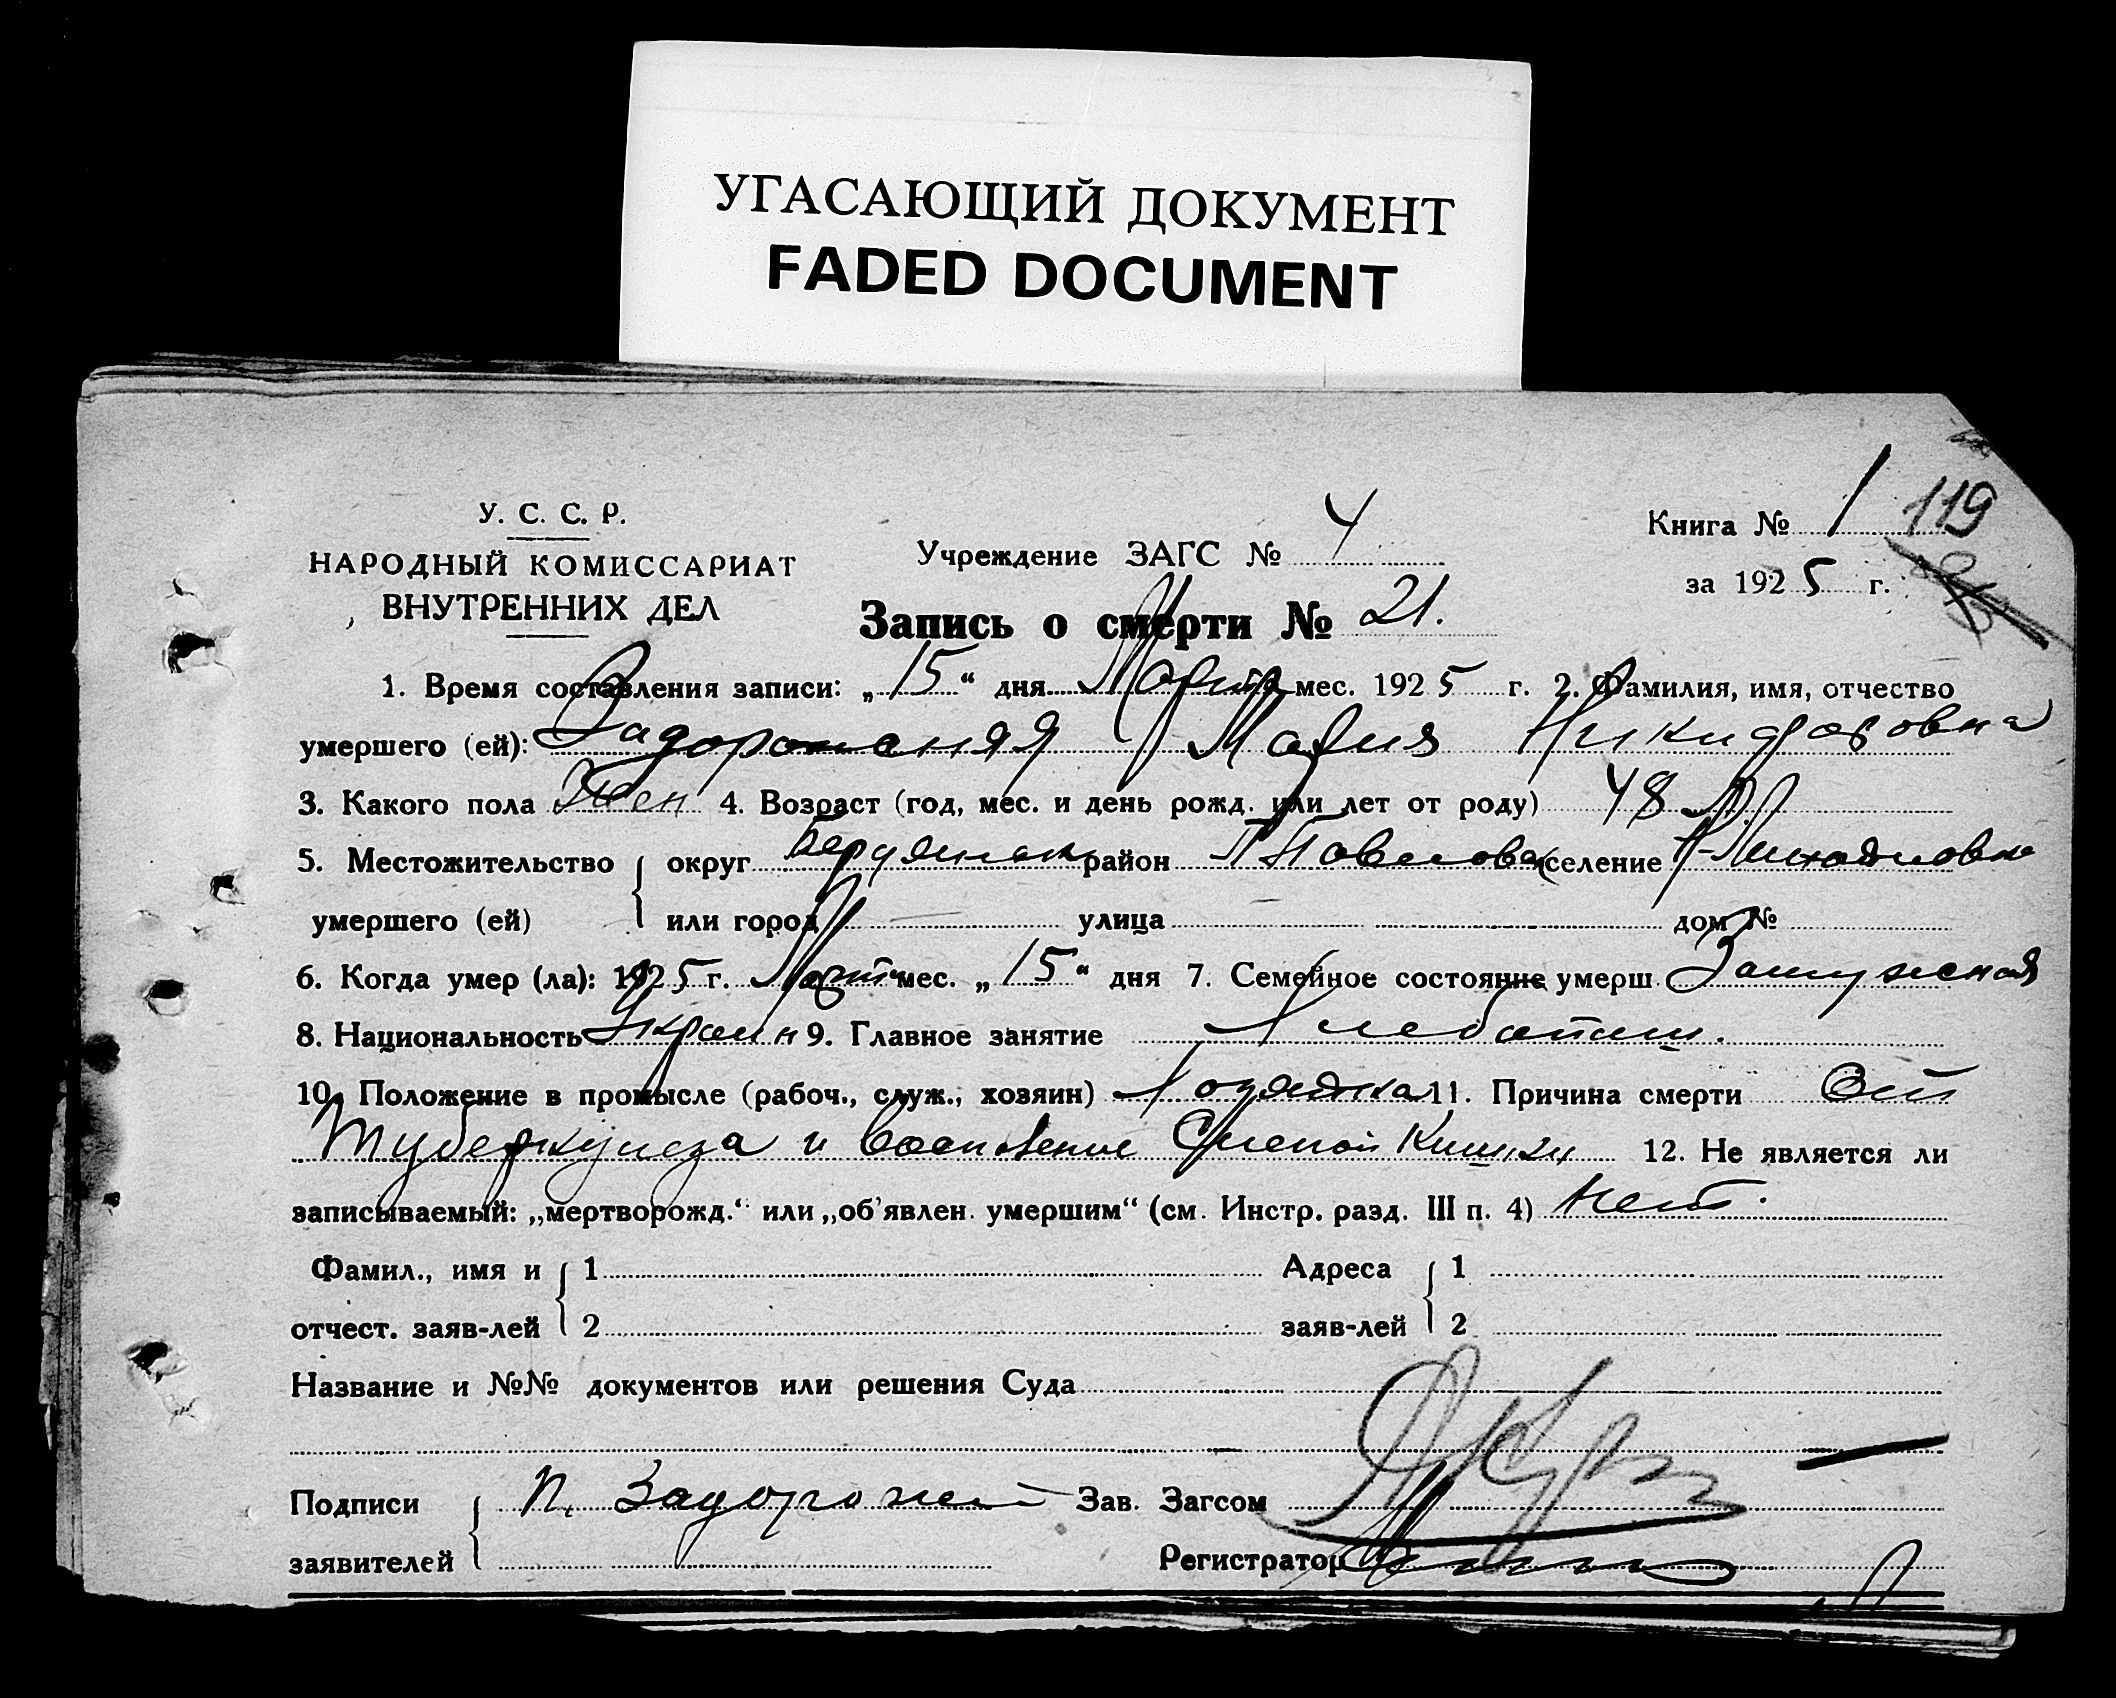 УГАСАЮЩИЙ ДОКУМЕНТ
FADED DOCUMENT
У. С. С. Р.
НАРОДНЫЙ КОМИССАРИАТ
ВНУТРЕННИХ ДЕЛ
Учреждение ЗАГС № 4
Книга № 1 119
за 1925 г.
Запись о смерти № 21.
1. Время составления записи: „15“ дня Марта мес. 1925 г. 2. Фамилия, имя, отчество
умершего (ей): Задорожная Мария Никифоровна
3. Какого пола Жен 4. Возраст (год, мес. и день рожд. или лет от роду) 48 л.
5. Местожительство округ Бердянск район селение
умершего (ей) или город улица дом №
6. Когда умер (ла): 1925 г. Март мес. „15“ дня 7. Семейное состояние умерш. Замужняя
8. Национальность Украин 9. Главное занятие Хлебопаш.
10. Положение в промысле (рабоч., служ., хозяин) Хозяйка 11. Причина смерти От
Туберкулеза и воспаление Слепой Кишки 12. Не является ли
записываемый: „мертворожд.“ или „об'явлен. умершим“ (см. Инстр. разд. III п. 4) Нет.
Фамил., имя и 1 Адреса 1
отчест. заяв-лей 2 заяв-лей 2
Название и №№ документов или решения Суда
Подписи П. Задорожний Зав. Загсом
заявителей Регистратор